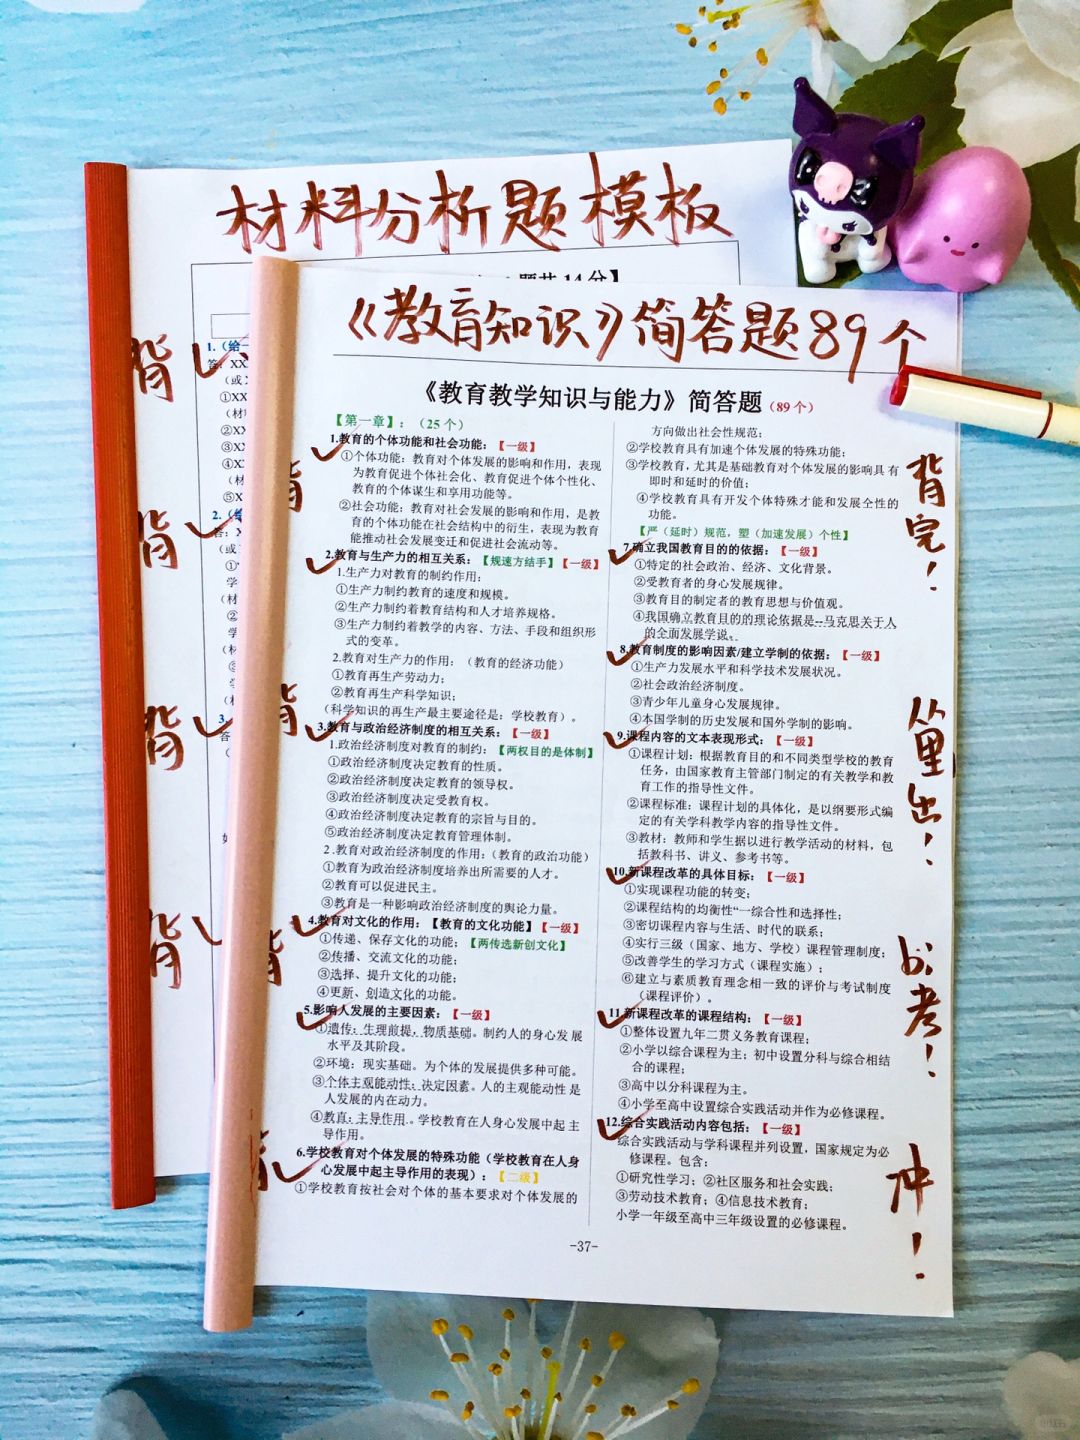 材料分析题模板
题共14分】
背
背
背
背
1.（给一
答：XX
（或
①XX
（材
②XX
③XX
④XX
⑤X
2.（给
答：X
（或
学
（材
②
学
（材
③
学
3
答
《教育知识》简答题89个
《教育教学知识与能力》简答题（89个）
【第一章】：（25个）
1.教育的个体功能和社会功能：【一级】
①个体功能：教育对个体发展的影响和作用，表现
为教育促进个体社会化、教育促进个体个性化、
教育的个体谋生和享用功能等。
②社会功能：教育对社会发展的影响和作用，是教
育的个体功能在社会结构中的衍生，表现为教育
能推动社会发展变迁和促进社会流动等。
2.教育与生产力的相互关系：【规速方结手】【一级】
1.生产力对教育的制约作用：
①生产力制约教育的速度和规模。
②生产力制约着教育结构和人才培养规格。
③生产力制约着教学的内容、方法、手段和组织形
式的变革。
2.教育对生产力的作用：（教育的经济功能）
①教育再生产劳动力；
②教育再生产科学知识；
（科学知识的再生产最主要途径是：学校教育）。
3.教育与政治经济制度的相互关系：【一级】
1.政治经济制度对教育的制约：【两权目的是体制】
①政治经济制度决定教育的性质。
②政治经济制度决定教育的领导权。
③政治经济制度决定受教育权。
④政治经济制度决定教育的宗旨与目的。
⑤政治经济制度决定教育管理体制。
2.教育对政治经济制度的作用：（教育的政治功能）
①教育为政治经济制度培养出所需要的人才。
②教育可以促进民主。
③教育是一种影响政治经济制度的舆论力量。
4.教育对文化的作用：【教育的文化功能】【一级】
①传递、保存文化的功能；【两传选新创文化】
②传播、交流文化的功能；
③选择、提升文化的功能；
④更新、创造文化的功能。
5.影响人发展的主要因素：【一级】
①遗传：生理前提，物质基础。制约人的身心发展
水平及其阶段。
②环境：现实基础。为个体的发展提供多种可能。
③个体主观能动性：决定因素。人的主观能动性是
人发展的内在动力。
④教育：主导作用。学校教育在人身心发展中起主
导作用。
6.学校教育对个体发展的特殊功能（学校教育在人身
心发展中起主导作用的表现）：【二级】
①学校教育按社会对个体的基本要求对个体发展的
方向做出社会性规范；
②学校教育具有加速个体发展的特殊功能；
③学校教育，尤其是基础教育对个体发展的影响具有
即时和延时的价值；
④学校教育具有开发个体特殊才能和发展个性的
功能。
【严（延时）规范，塑（加速发展）个性】
7.确立我国教育目的的依据：【一级】
①特定的社会政治、经济、文化背景。
②受教育者的身心发展规律。
③教育目的制定者的教育思想与价值观。
④我国确立教育目的的理论依据是--马克思关于人
的全面发展学说。
8.教育制度的影响因素/建立学制的依据：【一级】
①生产力发展水平和科学技术发展状况。
②社会政治经济制度。
③青少年儿童身心发展规律。
④本国学制的历史发展和国外学制的影响。
9.课程内容的文本表现形式：【一级】
①课程计划：根据教育目的和不同类型学校的教育
任务，由国家教育主管部门制定的有关教学和教
育工作的指导性文件。
②课程标准：课程计划的具体化，是以纲要形式编
定的有关学科教学内容的指导性文件。
③教材：教师和学生据以进行教学活动的材料，包
括教科书、讲义、参考书等。
10.新课程改革的具体目标：【一级】
①实现课程功能的转变；
②课程结构的均衡性、综合性和选择性；
③密切课程内容与生活、时代的联系；
④实行三级（国家、地方、学校）课程管理制度；
⑤改善学生的学习方式（课程实施）；
⑥建立与素质教育理念相一致的评价与考试制度
（课程评价）。
11.新课程改革的课程结构：【一级】
①整体设置九年二贯义务教育课程；
②小学以综合课程为主；初中设置分科与综合相结
合的课程；
③高中以分科课程为主。
④小学至高中设置综合实践活动并作为必修课程。
12.综合实践活动内容包括：【一级】
综合实践活动与学科课程并列设置，国家规定为必
修课程。包含：
①研究性学习；②社区服务和社会实践；
③劳动技术教育；④信息技术教育；
小学一年级至高中三年级设置的必修课程。
-37-
背
背
背
背
背完！
简出！
必考！
冲！